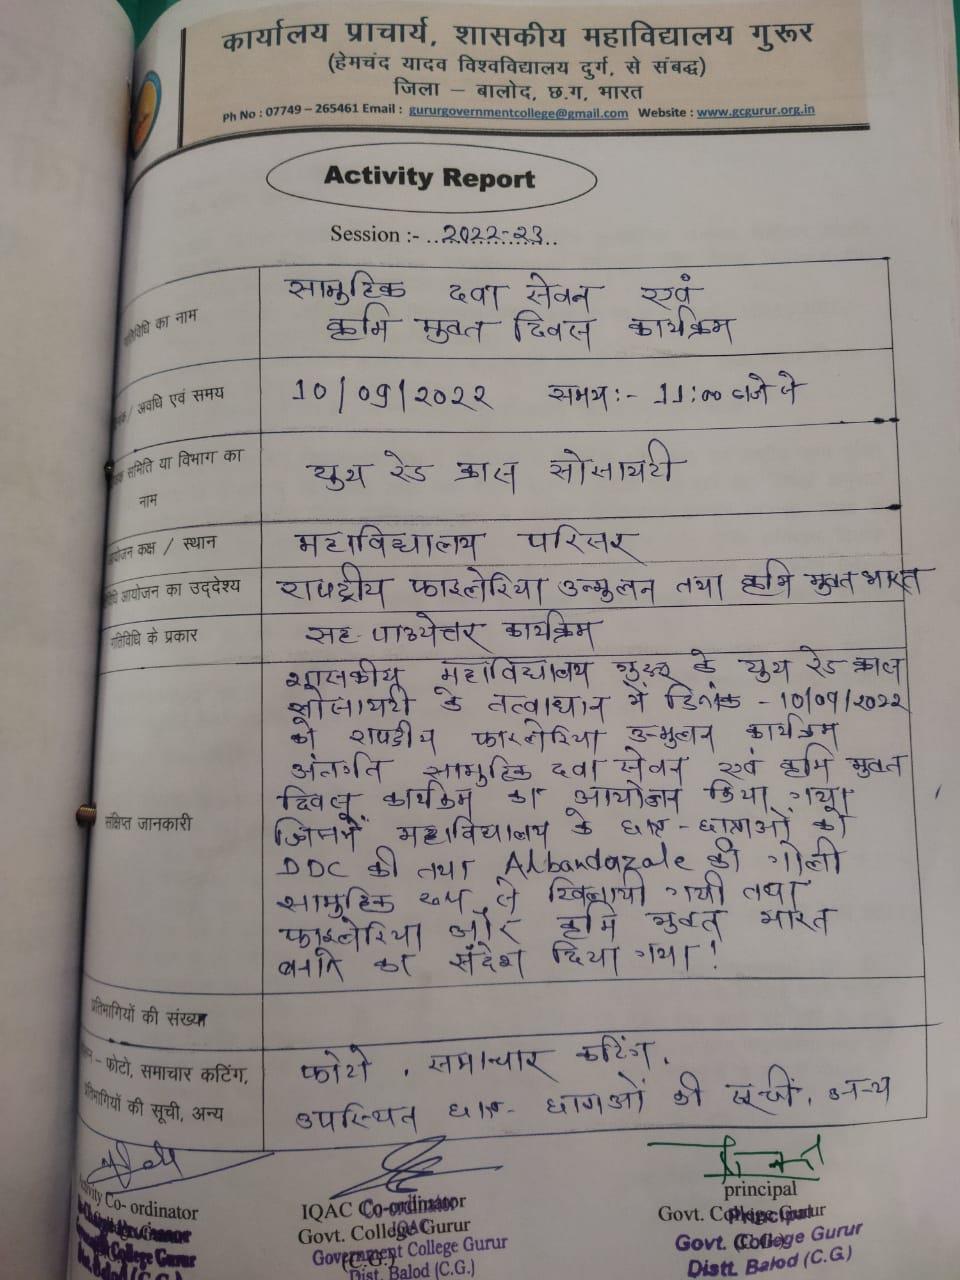 कार्यालय प्राचार्य, शासकीय महाविद्यालय गुरूर
(हेमचंद यादव विश्वविद्यालय दुर्ग, से संबद्ध)
जिला – बालोद, छ.ग, भारत
Ph No : 07749 – 265461 Email : gururgovernmentcollege@gmail.com Website : www.gcgurur.org.in
Activity Report
Session :- ..2022-23..
का नाम
सामुहिक दवा सेवन एवं
कृमि मुक्त दिवस कार्यक्रम
/ अवधि एवं समय
10/09/2022 समय:- 11:00 बजे से
समिति या विभाग का
नाम
यूथ रेड क्रास सोसायटी
कक्ष / स्थान
महाविद्यालय परिसर
आयोजन का उद्देश्य
राष्ट्रीय फाइलेरिया उन्मुलन तथा कृमि मुक्त भारत
गतिविधि के प्रकार
सह-पाठ्येत्तर कार्यक्रम
संक्षिप्त जानकारी
शासकीय महाविद्यालय गुरूर के यूथ रेड क्रास
सोसायटी के तत्वाधान में दिनांक - 10/09/2022
को राष्ट्रीय फाइलेरिया उन्मुलन कार्यक्रम
अंतर्गत सामुहिक दवा सेवन एवं कृमि मुक्त
दिवस कार्यक्रम का आयोजन किया गया
जिसमें महाविद्यालय के छात्र-छात्राओं को
DDC की तथा Albandazale की गोली
सामुहिक रूप से खिलायी गयी तथा
फाइलेरिया और कृमि मुक्त भारत
बनाने का संदेश दिया गया!
प्रतिभागियों की संख्या
– फोटो, समाचार कटिंग,
प्रतिभागियों की सूची, अन्य
फोटो, समाचार कटिंग,
उपस्थित छात्र-छात्राओं की सूची, अन्य
Activity Co- ordinator
College Gurur
Balod (C.G.)
IQAC Co-ordinator
Govt. College Gurur
(C.G.)
Co-ordinator
IQAC
Government College Gurur
Dist. Balod (C.G.)
principal
Govt. College Gurur
(C.G.)
Principal
Govt. College Gurur
Distt. Balod (C.G.)